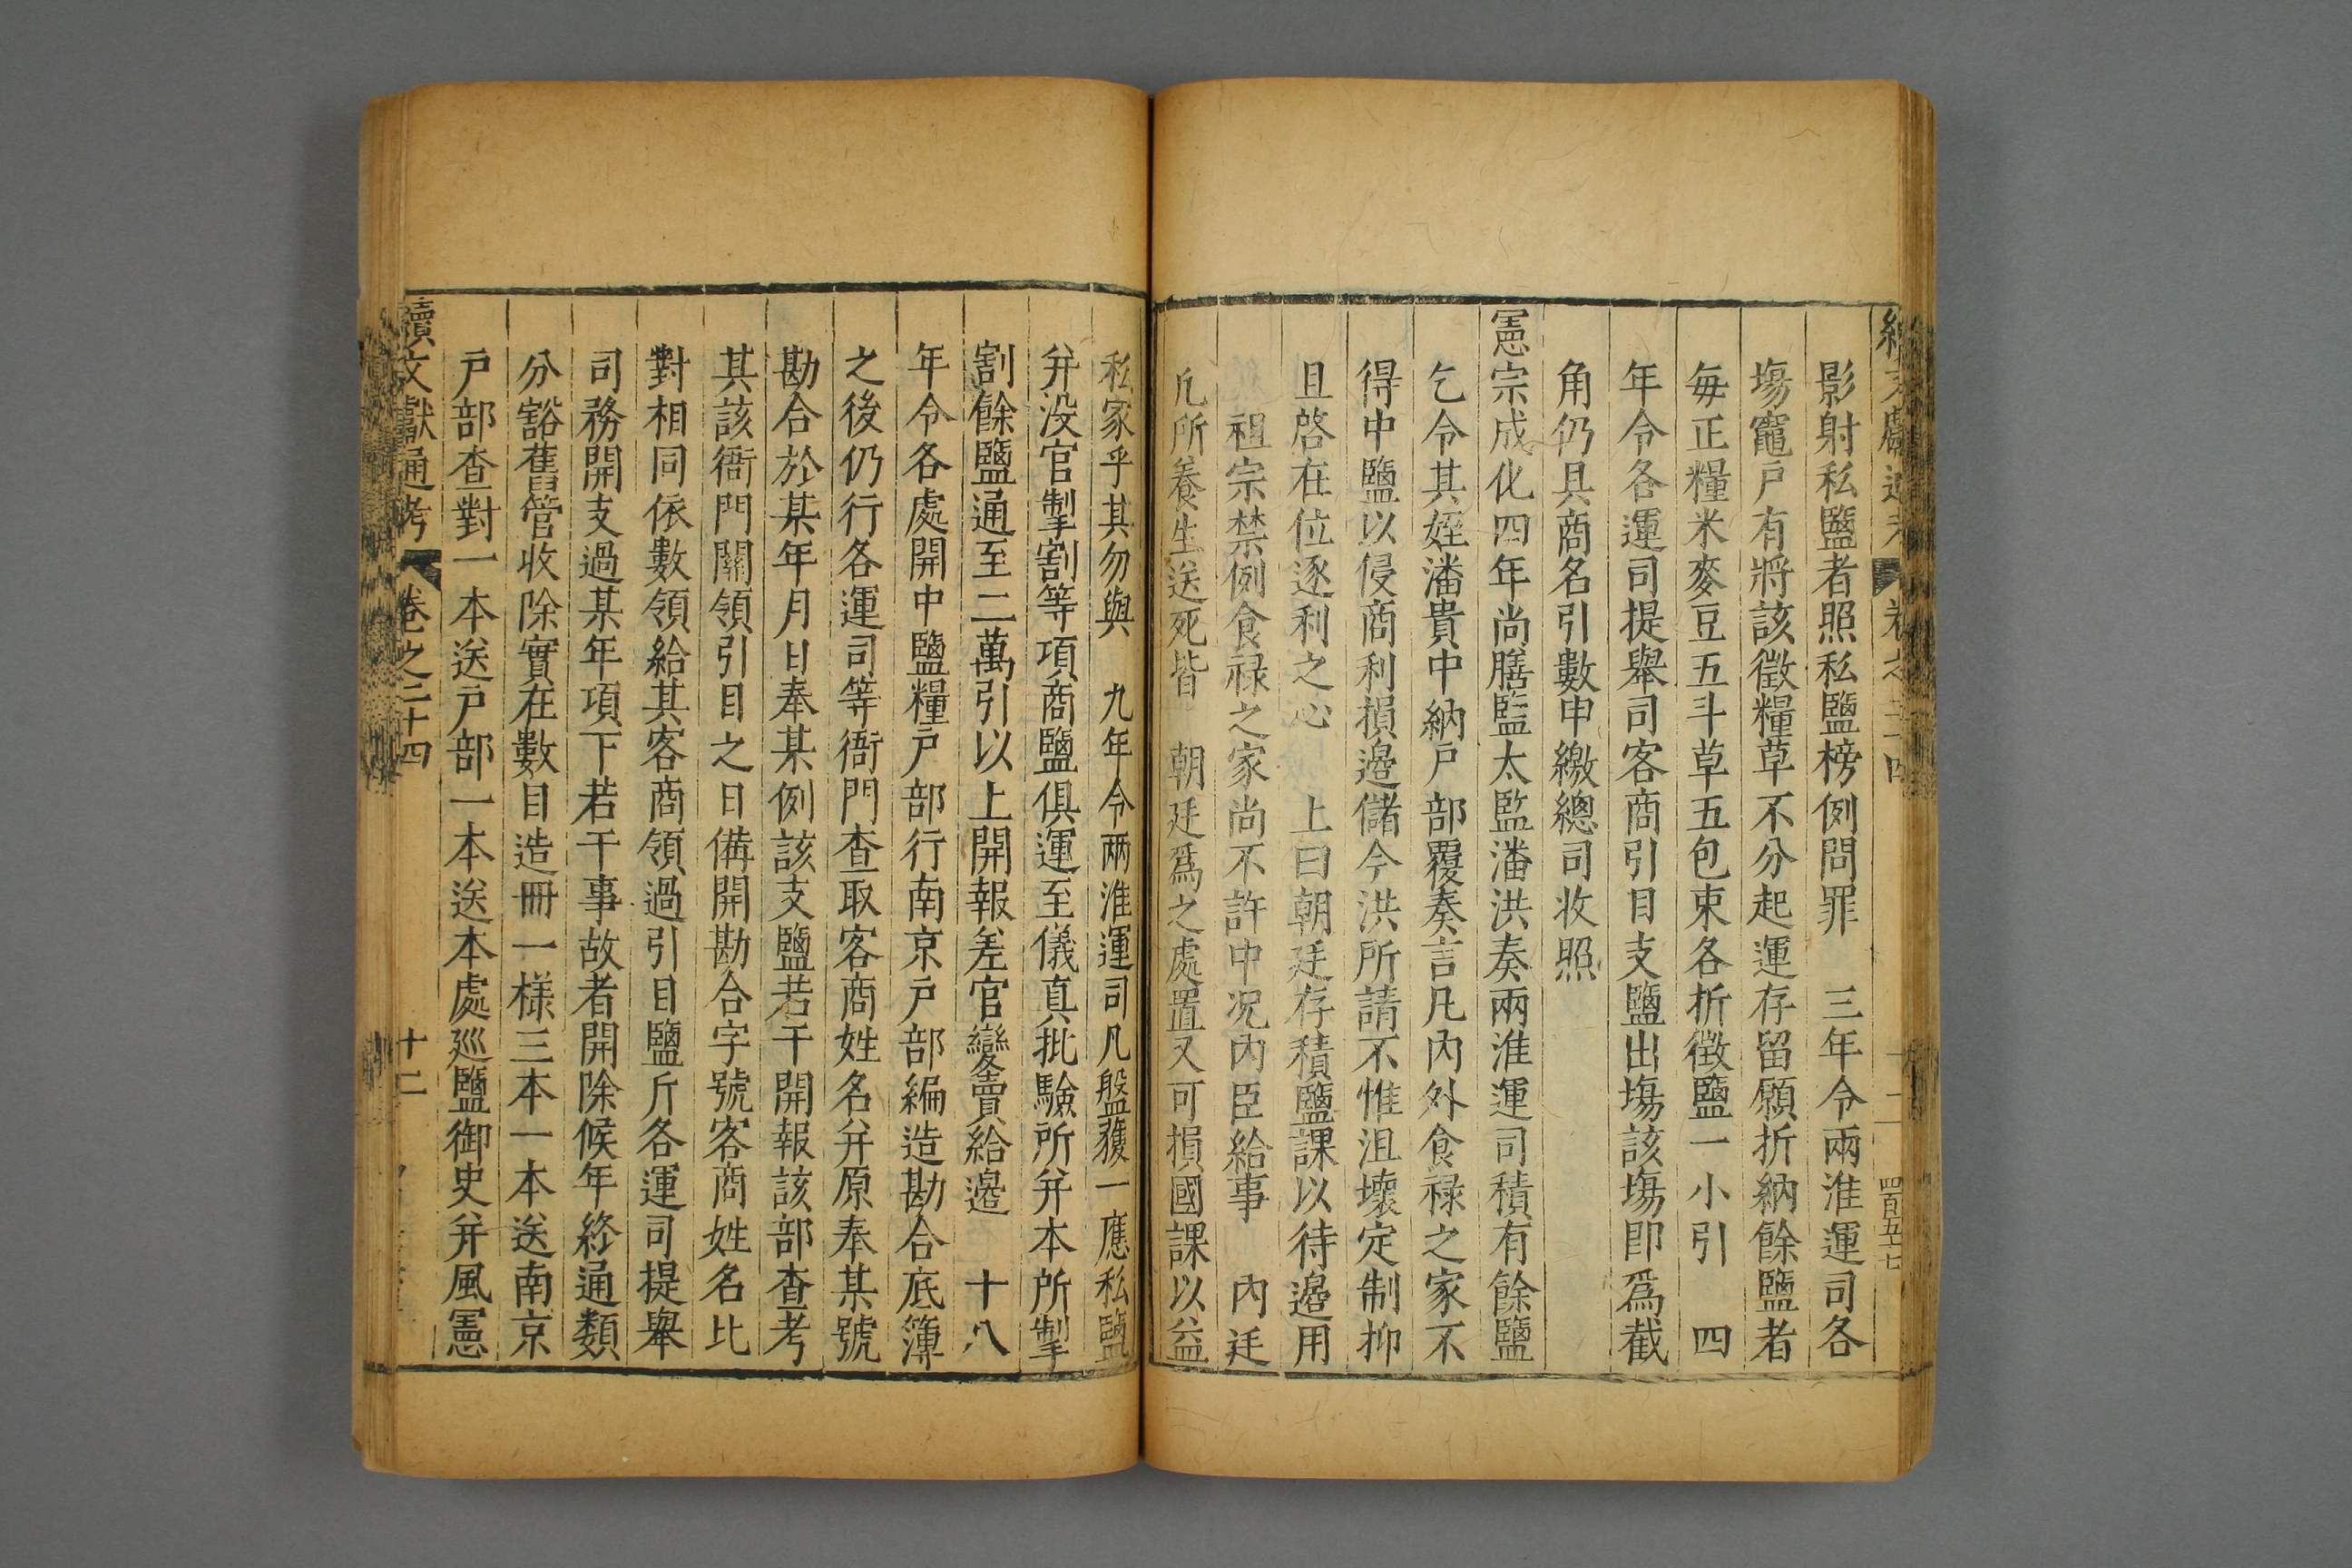 影射私鹽者照私鹽榜例問罪　三年令兩淮運司各
塲竈戸有將該徵糧草不分起運存留願折納餘鹽者
每正糧米麥豆五斗草五包束各折徵鹽一小引　四
年令各運司提舉司客商引目支鹽出塲該塲即爲截
角仍具商名引數申繳總司收照
憲宗成化四年尚膳監太監潘洪奏兩淮運司積有餘鹽
乞令其姪潘貴中納戸部覆奏言凡内外食禄之家不
得中鹽以侵商利損邉儲今洪所請不惟沮壞定制抑
且啓在位逐利之心　上曰朝廷存積鹽課以待邉用
祖宗禁例食禄之家尚不許中况内臣給事　內廷
凡所養生送死皆　朝廷爲之處置又可損國課以益
私家乎其勿與　九年令兩淮運司凡盤獲一應私鹽
并没官掣割等項商鹽俱運至儀真批驗所并本所掣
割餘鹽通至二萬引以上開報差官變賣給邉　十八
年令各處開中鹽糧戸部行南京戸部編造勘合底簿
之後仍行各運司等衙門查取客商姓名并原奉某號
勘合於某年月日奉某例該支鹽若干開報該部查考
其該衙門關領引目之日備開勘合字號客商姓名比
對相同依數領給其客商領過引目鹽斤各運司提舉
司務開支過某年項下若干事故者開除候年終通類
分豁舊管收除實在數目造冊一樣三本一本送南京
戸部查對一本送戸部一本送本處廵鹽御史并風憲
續文獻通考　卷之二十四　十二